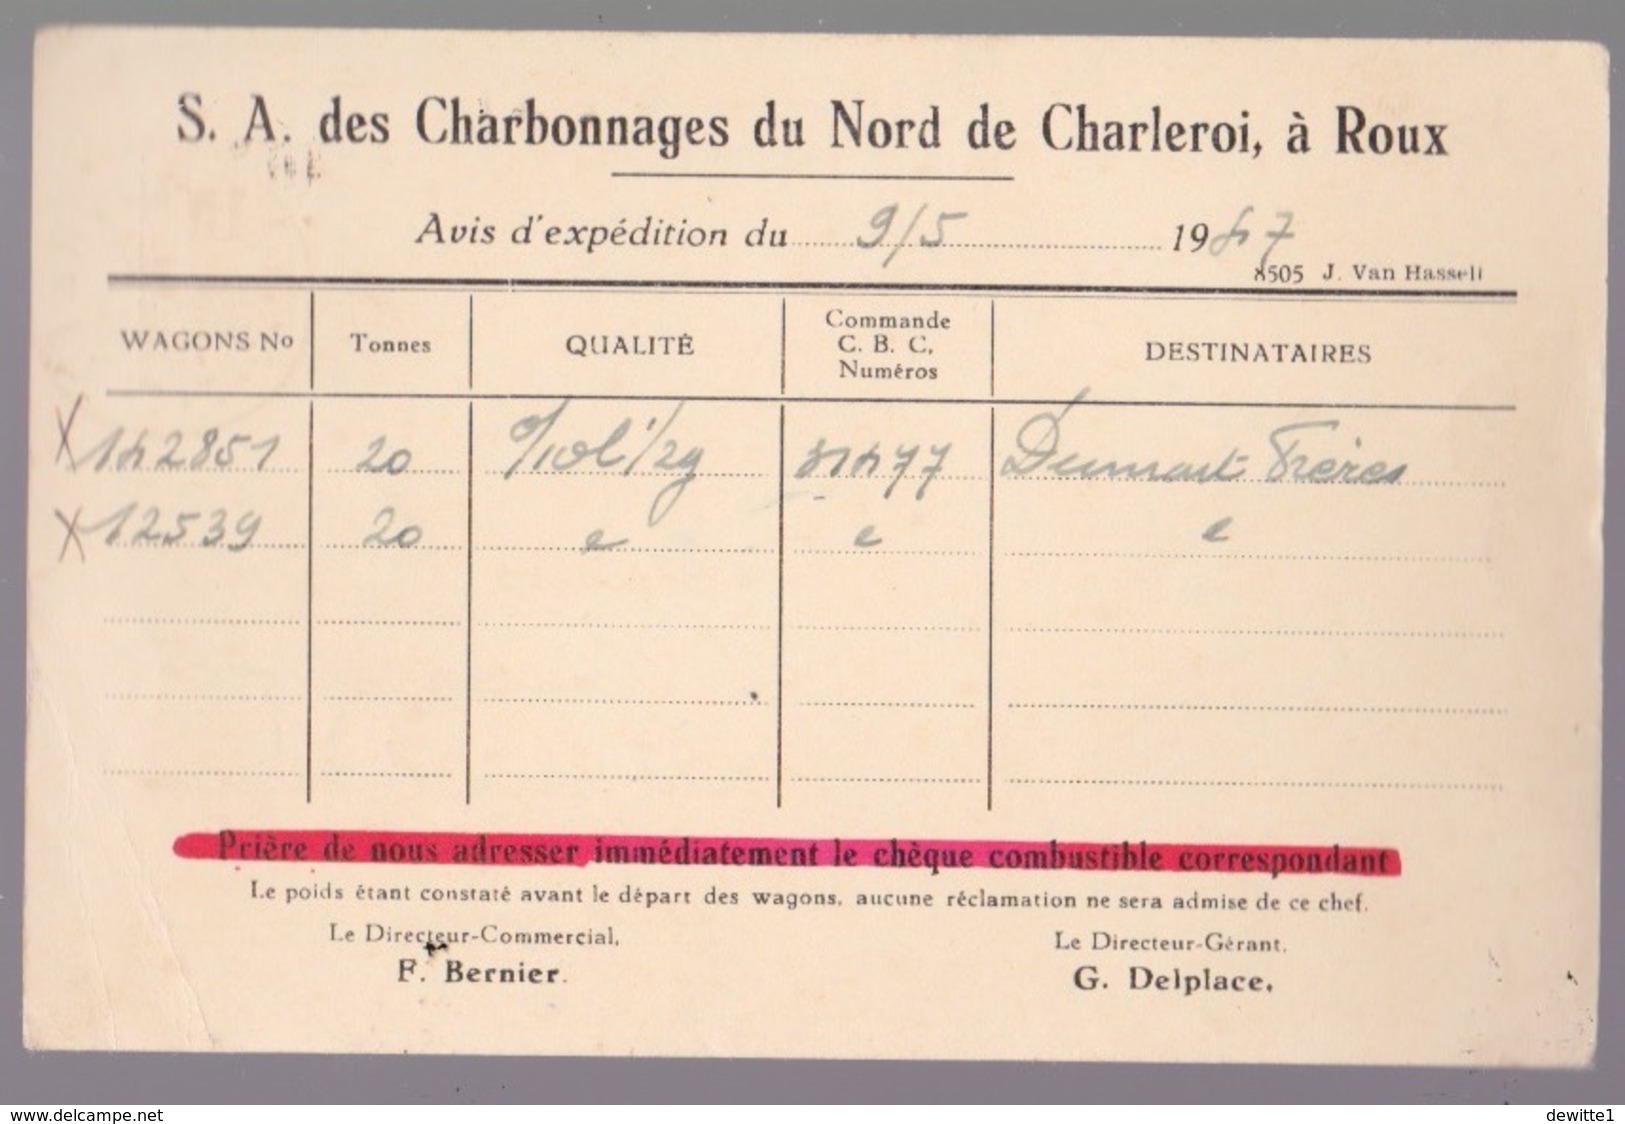 S. A. des Charbonnages du Nord de Charleroi, à Roux
Avis d'expédition du 9/5 1947
8505 J. Van Hasselt
WAGONS No Tonnes QUALITÉ Commande C. B. C. Numéros DESTINATAIRES
X 142851 20 31477 Dumont Frères
X 12539 20
Prière de nous adresser immédiatement le chèque combustible correspondant
Le poids étant constaté avant le départ des wagons, aucune réclamation ne sera admise de ce chef.
Le Directeur-Commercial, Le Directeur-Gérant,
F. Bernier. G. Delplace.
www.delcampe.net dewitte1